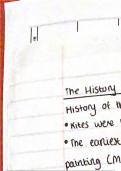 The History
History of th
• Kites were
• The earliest
painting (M